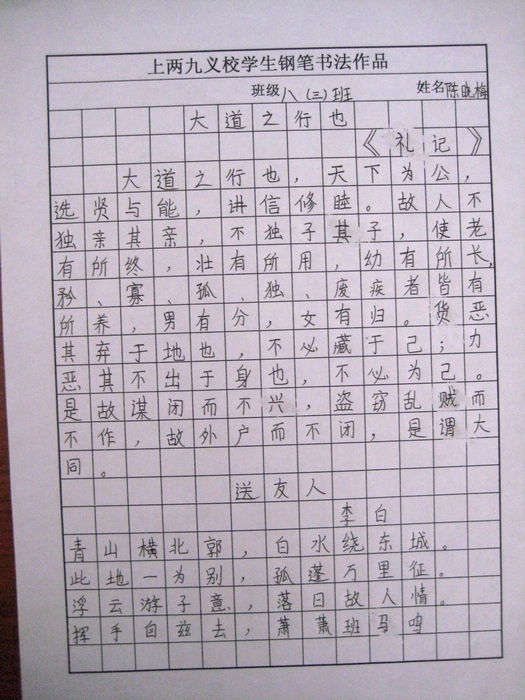 上两九义校学生钢笔书法作品
班级八(三)班 姓名陈晓梅
大道之行也
《礼记》
大道之行也，天下为公，
选贤与能，讲信修睦。故人不
独亲其亲，不独子其子，使老
有所终，壮有所用，幼有所长，
矜、寡、孤、独、废疾者皆有
所养，男有分，女有归。货恶
其弃于地也，不必藏于己；力
恶其不出于身也，不必为己。
是故谋闭而不兴，盗窃乱贼而
不作，故外户而不闭，是谓大
同。
送友人
李白
青山横北郭，白水绕东城。
此地一为别，孤蓬万里征。
浮云游子意，落日故人情。
挥手自兹去，萧萧班马鸣